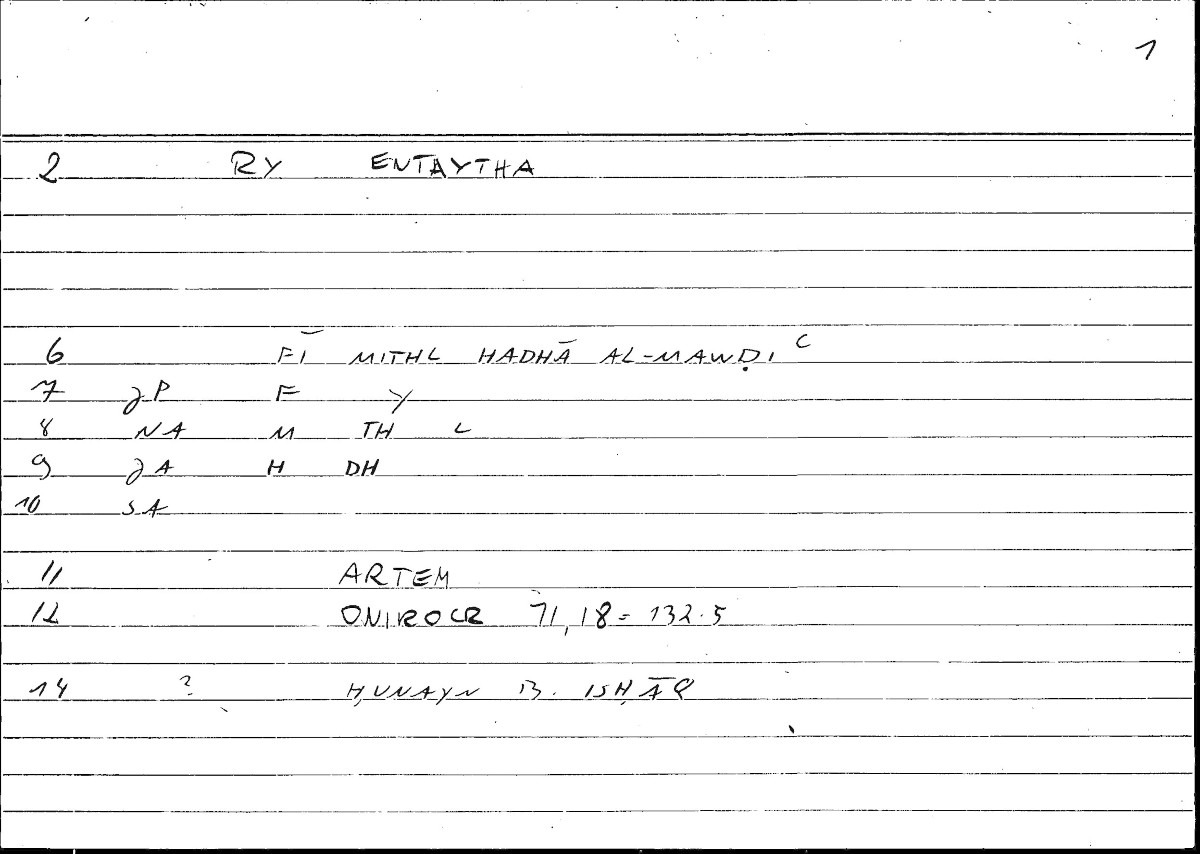 1
2 RY ENTAYTHA
6 FĪ MITHL HADHĀ AL-MAWḌIC
7 JP F Y
8 NA M TH L
9 JA H DH
10 SA
11 ARTEM
12 ONIROCR 71,18=132.5
14 ? ḤUNAYN B. ISḤĀQ